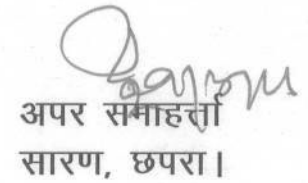 अपर समाहर्त्ता
सारण, छपरा।